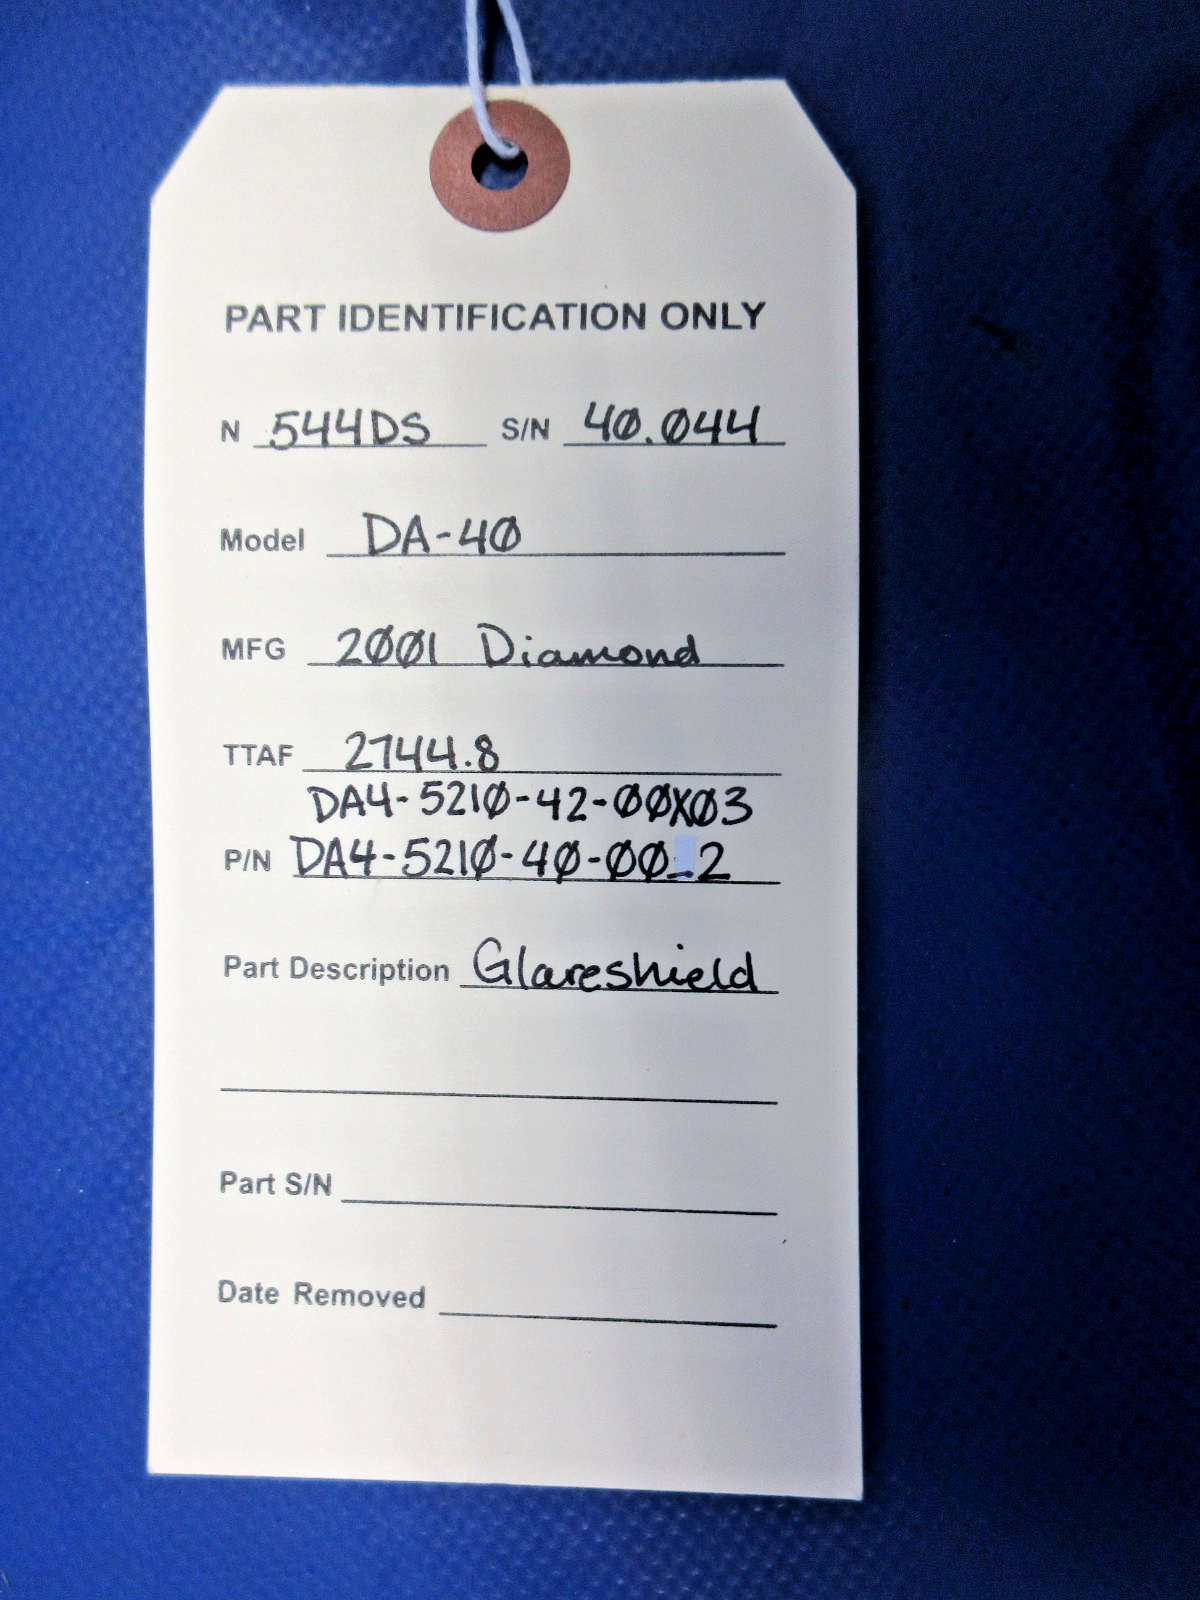 PART IDENTIFICATION ONLY
N 544DS S/N 40.044
Model DA-40
MFG 2001 Diamond
TTAF 2744.8
DA4-5210-42-00X03
P/N
Part Description Glareshield
Part S/N
Date Removed